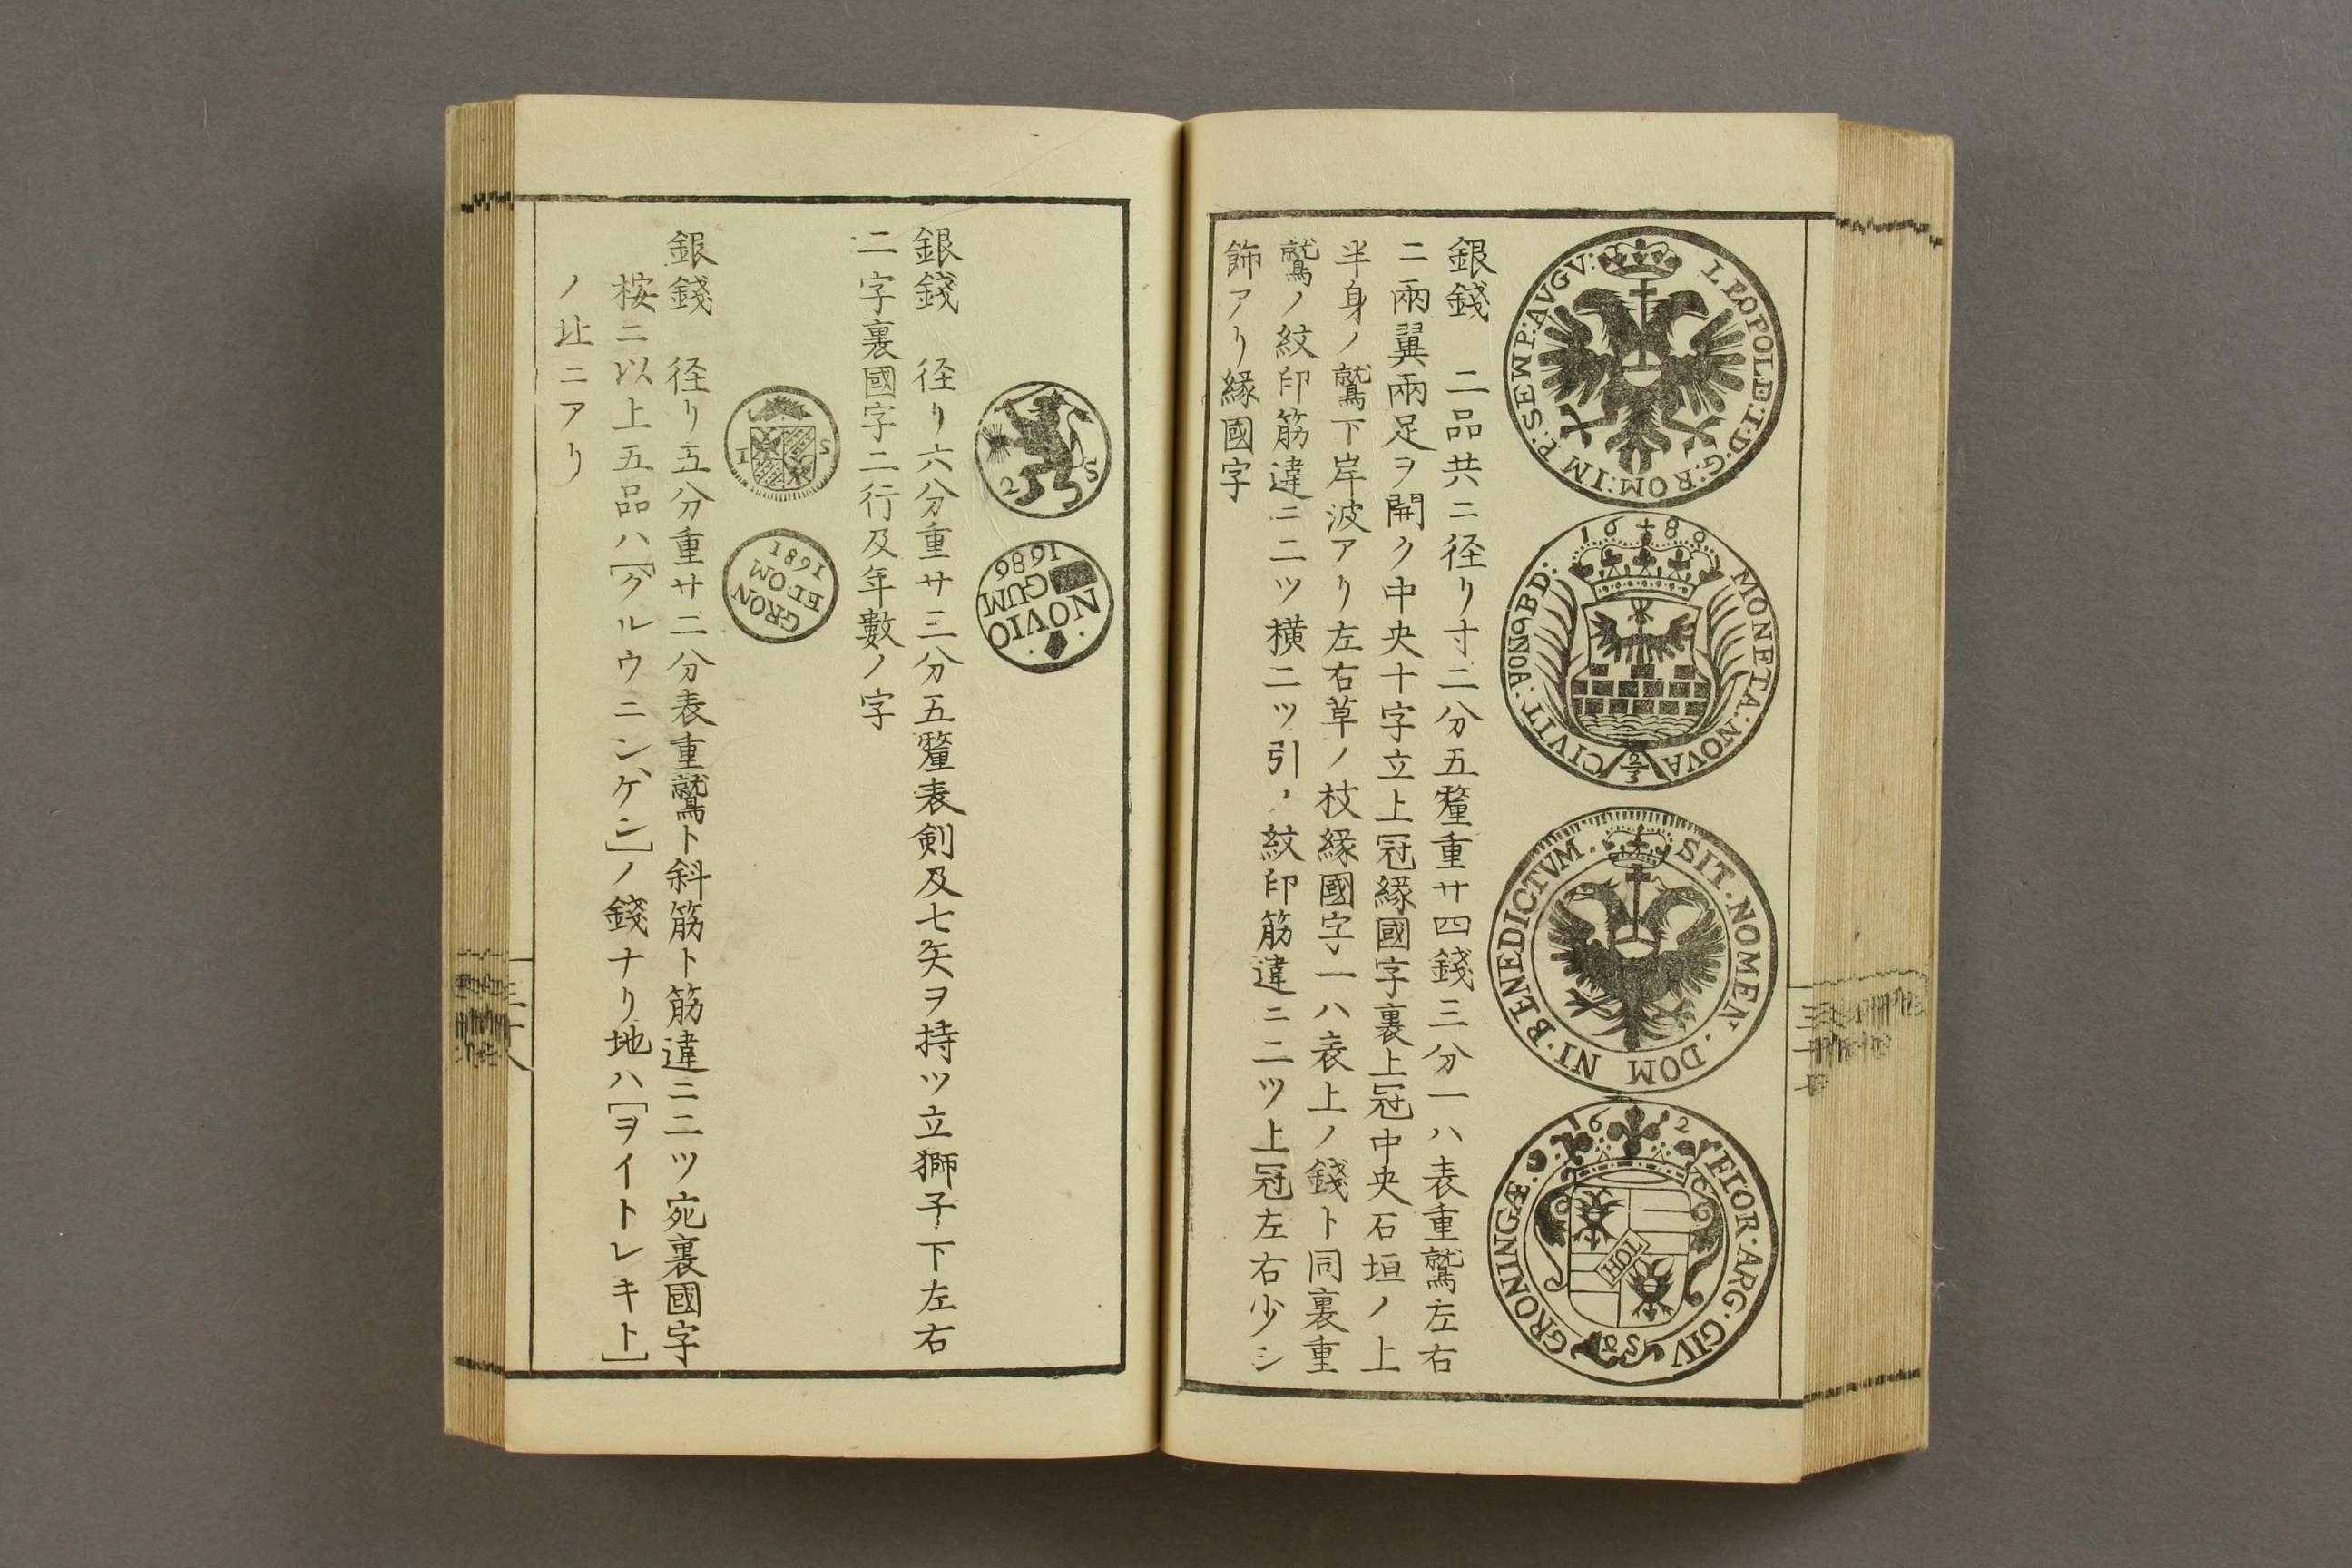 LEOPOLD:I:D:G:ROM:IMP:SEMP:AUGV:
1689
MONETA:NOVA
2/3
CIVIT:
SIT·NOMEN·DOM
NI·BENEDICTVM·
162
FLOR·ARG·CIV
GRONINGÆ·
銀錢 二品共ニ径リ寸二分五釐重サ四錢三分一ハ表重鷲左右
ニ兩翼兩足ヲ開ク中央十字立上冠縁國字裏上冠中央石垣ノ上
半身ノ鷲下岸波アリ左右草ノ枝縁國字一ハ表上ノ錢ト同裏重
鷲ノ紋印筋違ニ二ツ横二ツ引ノ紋印筋違ニ二ツ上冠左右少シ
飾アリ縁國字
2 S
NOVIO
GUM
1686
銀錢 径リ六分重サ三分五釐表剣及七矢ヲ持ツ立獅子下左右
二字裏國字二行及年數ノ字
I S
GRON
ET·OM
1681
銀錢 径リ五分重サ二分表重鷲ト斜筋ト筋違ニ二ツ宛裏國字
桉ニ以上五品ハ[グルウニンゲン]ノ錢ナリ地ハ[ヲイトレキト]
ノ北ニアリ
三十八